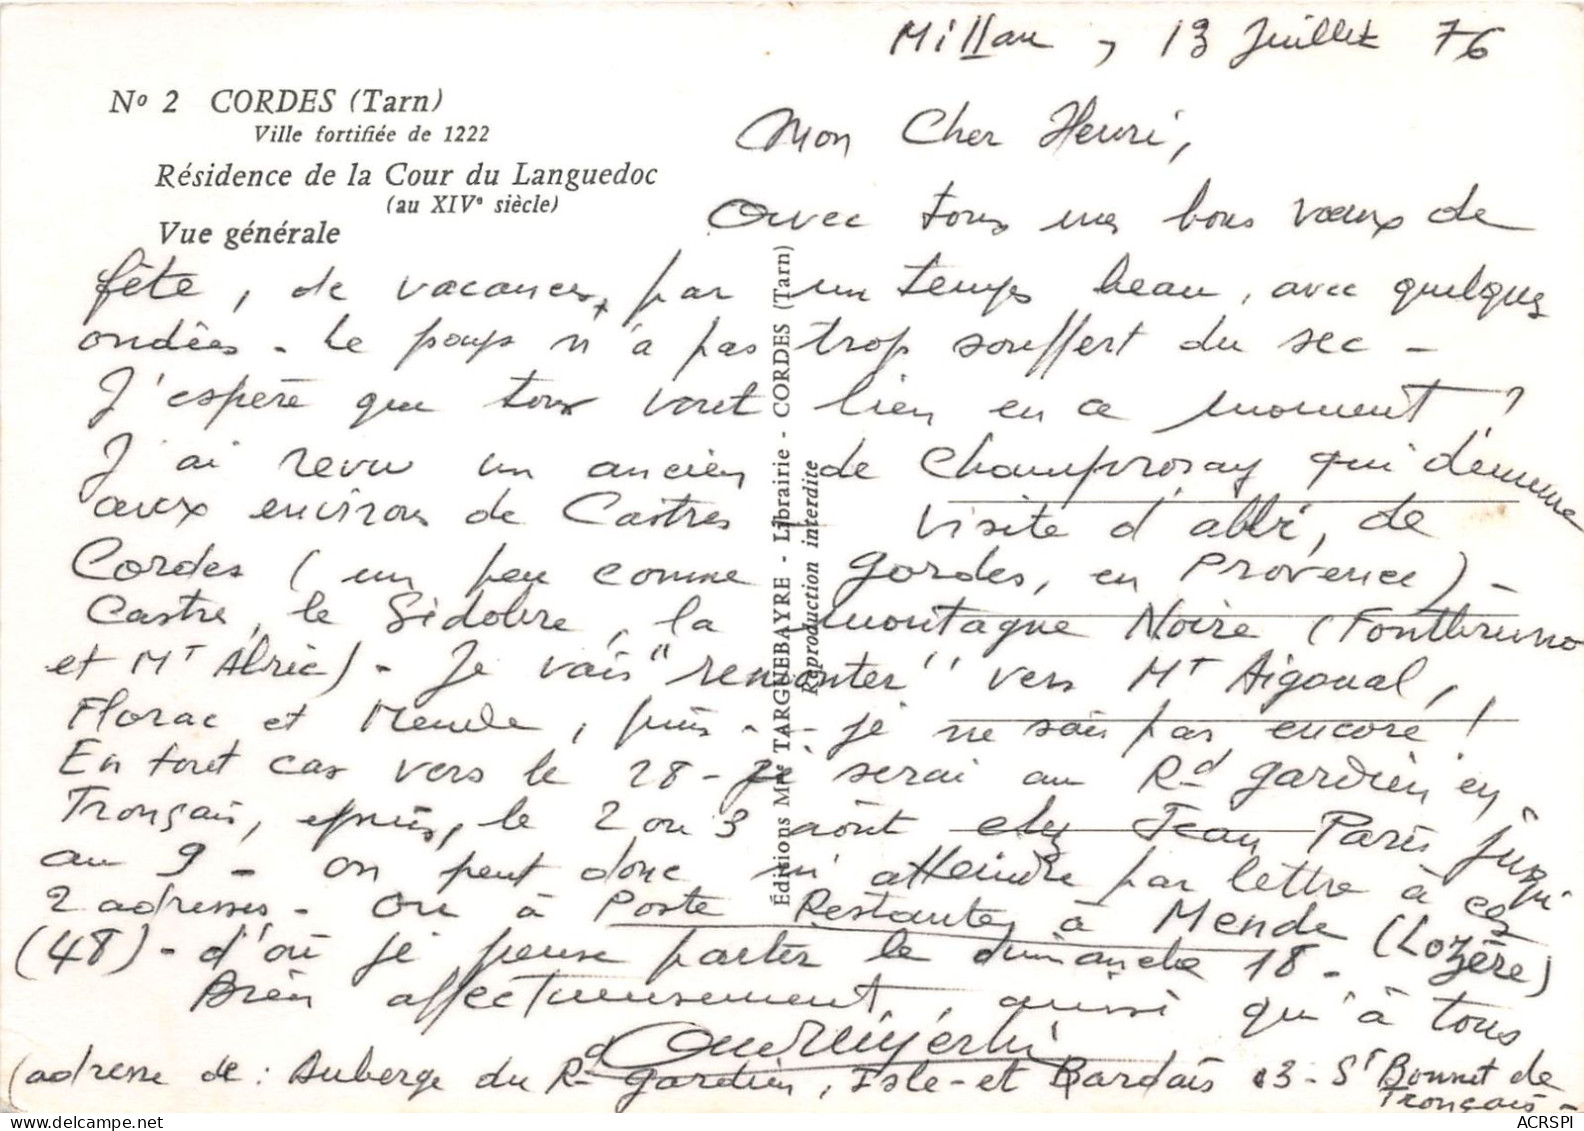 Millau, 13 Juillet 76
N° 2 CORDES (Tarn)
Ville fortifiée de 1222
Résidence de la Cour du Languedoc
(au XIVe siècle)
Vue générale
Mon Cher Henri,
Avec tous mes bons vœux de
fête, de vacances, par un temps beau, avec quelques
ondées - Le pays n'a pas trop souffert du sec -
J'espère que tous vont bien en ce moment ?
J'ai revu un ancien de Champrosay qui demeure
aux environs de Castres - visite d'Albi, de
Cordes (un peu comme Gordes, en Provence) -
Castres, le Sidobre, la montagne Noire (Fontbruno
et Mt Alric) - Je vais "remonter" vers Mt Aigoual,
Florac et Mende, puis - - je ne sais pas encore !
En tout cas vers le 28 - je serai au Rd gardien en
Tronçais, puis, le 2 ou 3 août chez Jean Paris jusqu'
au 9 - On peut donc m'atteindre par lettre à ces
2 adresses - Ou à Poste Restante, à Mende (Lozère)
(48) - d'où je pense partir le dimanche 18 -
Bien affectueusement, ainsi qu'à tous
(adresse de : Auberge du Rd gardien, Isle-et Bardais 03 - St Bonnet de
Tronçais -
Éditions Me TARGUEBAYRE - Librairie - CORDES (Tarn)
Reproduction interdite
ACRSPI